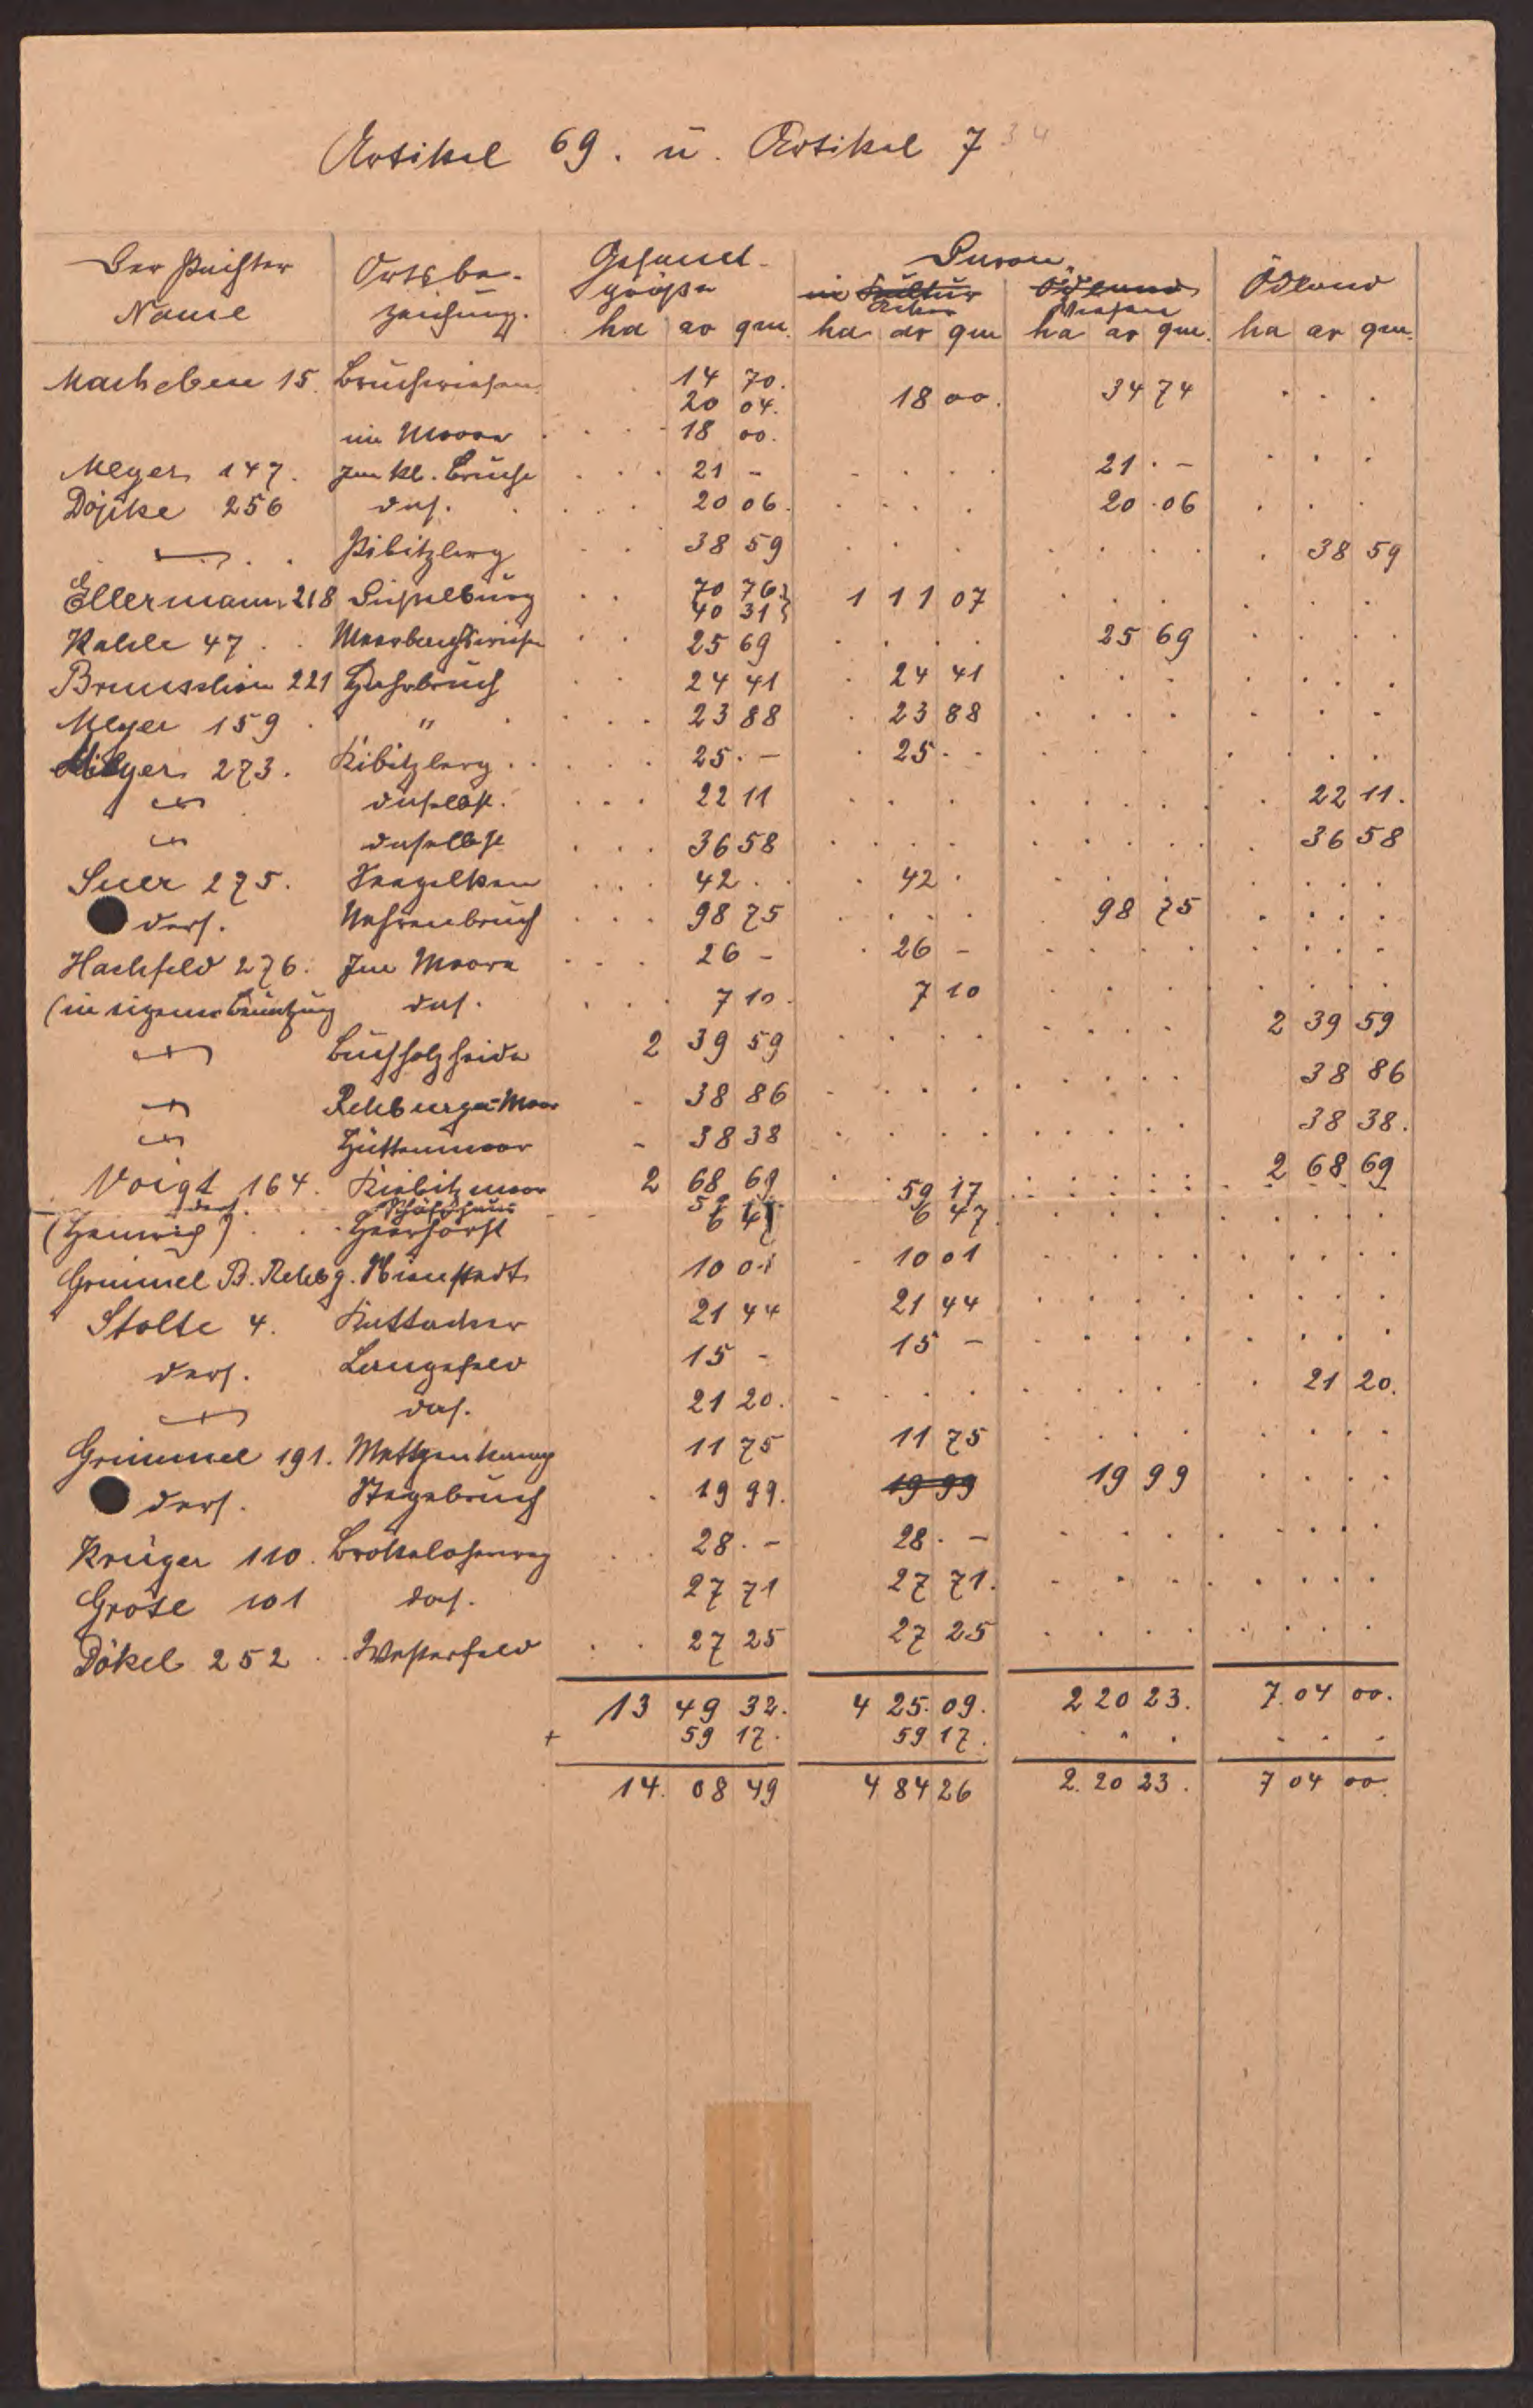 Artikel 69. u. Artikel 734
Der Pächter Name | Ortsbezeichnung. | Gesamtgröße | Davon | Ödland
in Kultur Acker | Ödland Wiesen
ha ar qm. | ha ar qm | ha ar qm. | ha ar qm.
Macheben 15. Bruchwiesen 14 70. 18 00. 34 74
20 04.
im Moore 18 00.
Meyer 147. Im kl. Bruche 21 - 21 -
Döpke 256 das. 20 06. 20 06
Kibitzberg 38 59 38 59
Ellermann 218 Düsselburg 70 76 1 11 07
40 31
Kahle 47 Moorbachswiesen 25 69 25 69
221 Hahrbruch 24 41 24 41
Meyer 159 " 23 88 23 88
Meyer 273. Kibitzberg 25. - 25. -
daselbst. 22 11 22 11.
daselbst 36 58 36 58
Suer 275. 42. 42.
ders. Nehrenbruch 98 75 98 75
Hachfeld 276. Im Moore 26 - 26 -
(in eigener Benutzung das. 7 10. 7 10
Buchholzheide 2 39 59 2 39 59
Rehburger-Moor - 38 86 38 86
Hüttenmoor - 38 38 38 38.
Voigt 164. Kiebitzmoor 2 68 69 2 68 69
ders. Schäfhaus 59 17 59 17
(Heinrich) Heerhorst 6 47 6 47.
Grimmel B. Rehbg. 10 01 10 01
Stolte 4. Kuttacker 21 44 21 44
ders. Langefeld 15 - 15 -
das. 21 20. 21 20.
Grimmel 191. Mettzenkamp 11 75 11 75
ders. Stegebruch 19 99. 19 99 19 99
Krüger 110. Brokeloherweg 28. - 28. -
Grote 101 das. 27 71 27 71.
Dökel 252 Westerfeld 27 25 27 25
13 49 32. 4 25. 09. 2 20 23. 7. 04 00.
+ 59 17. 59 17.
14. 08 49 4 84 26 2. 20 23. 7 04 00.